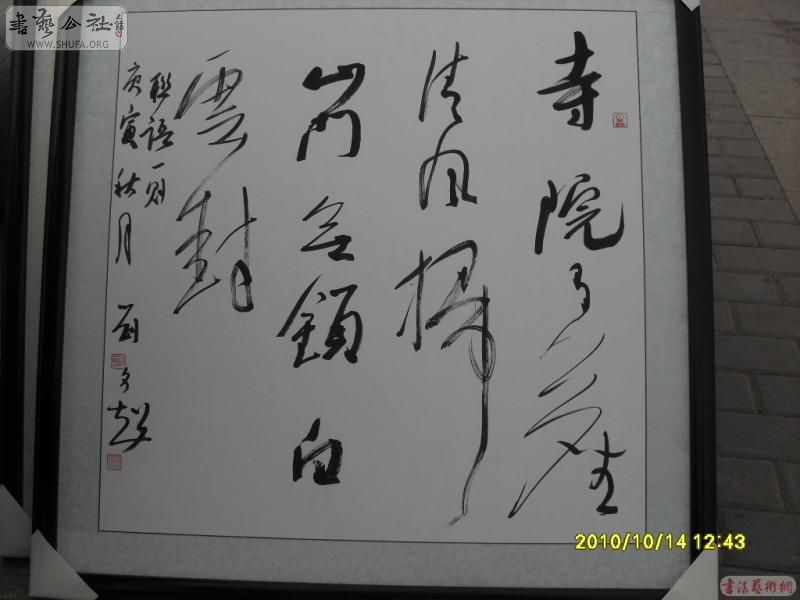 書藝公社
WWW.SHUFA.ORG
寺院有塵
清風掃
山門無鎖白
雲封
聯語一則
庚寅秋月 文超
2010/10/14 12:43
書法藝術網